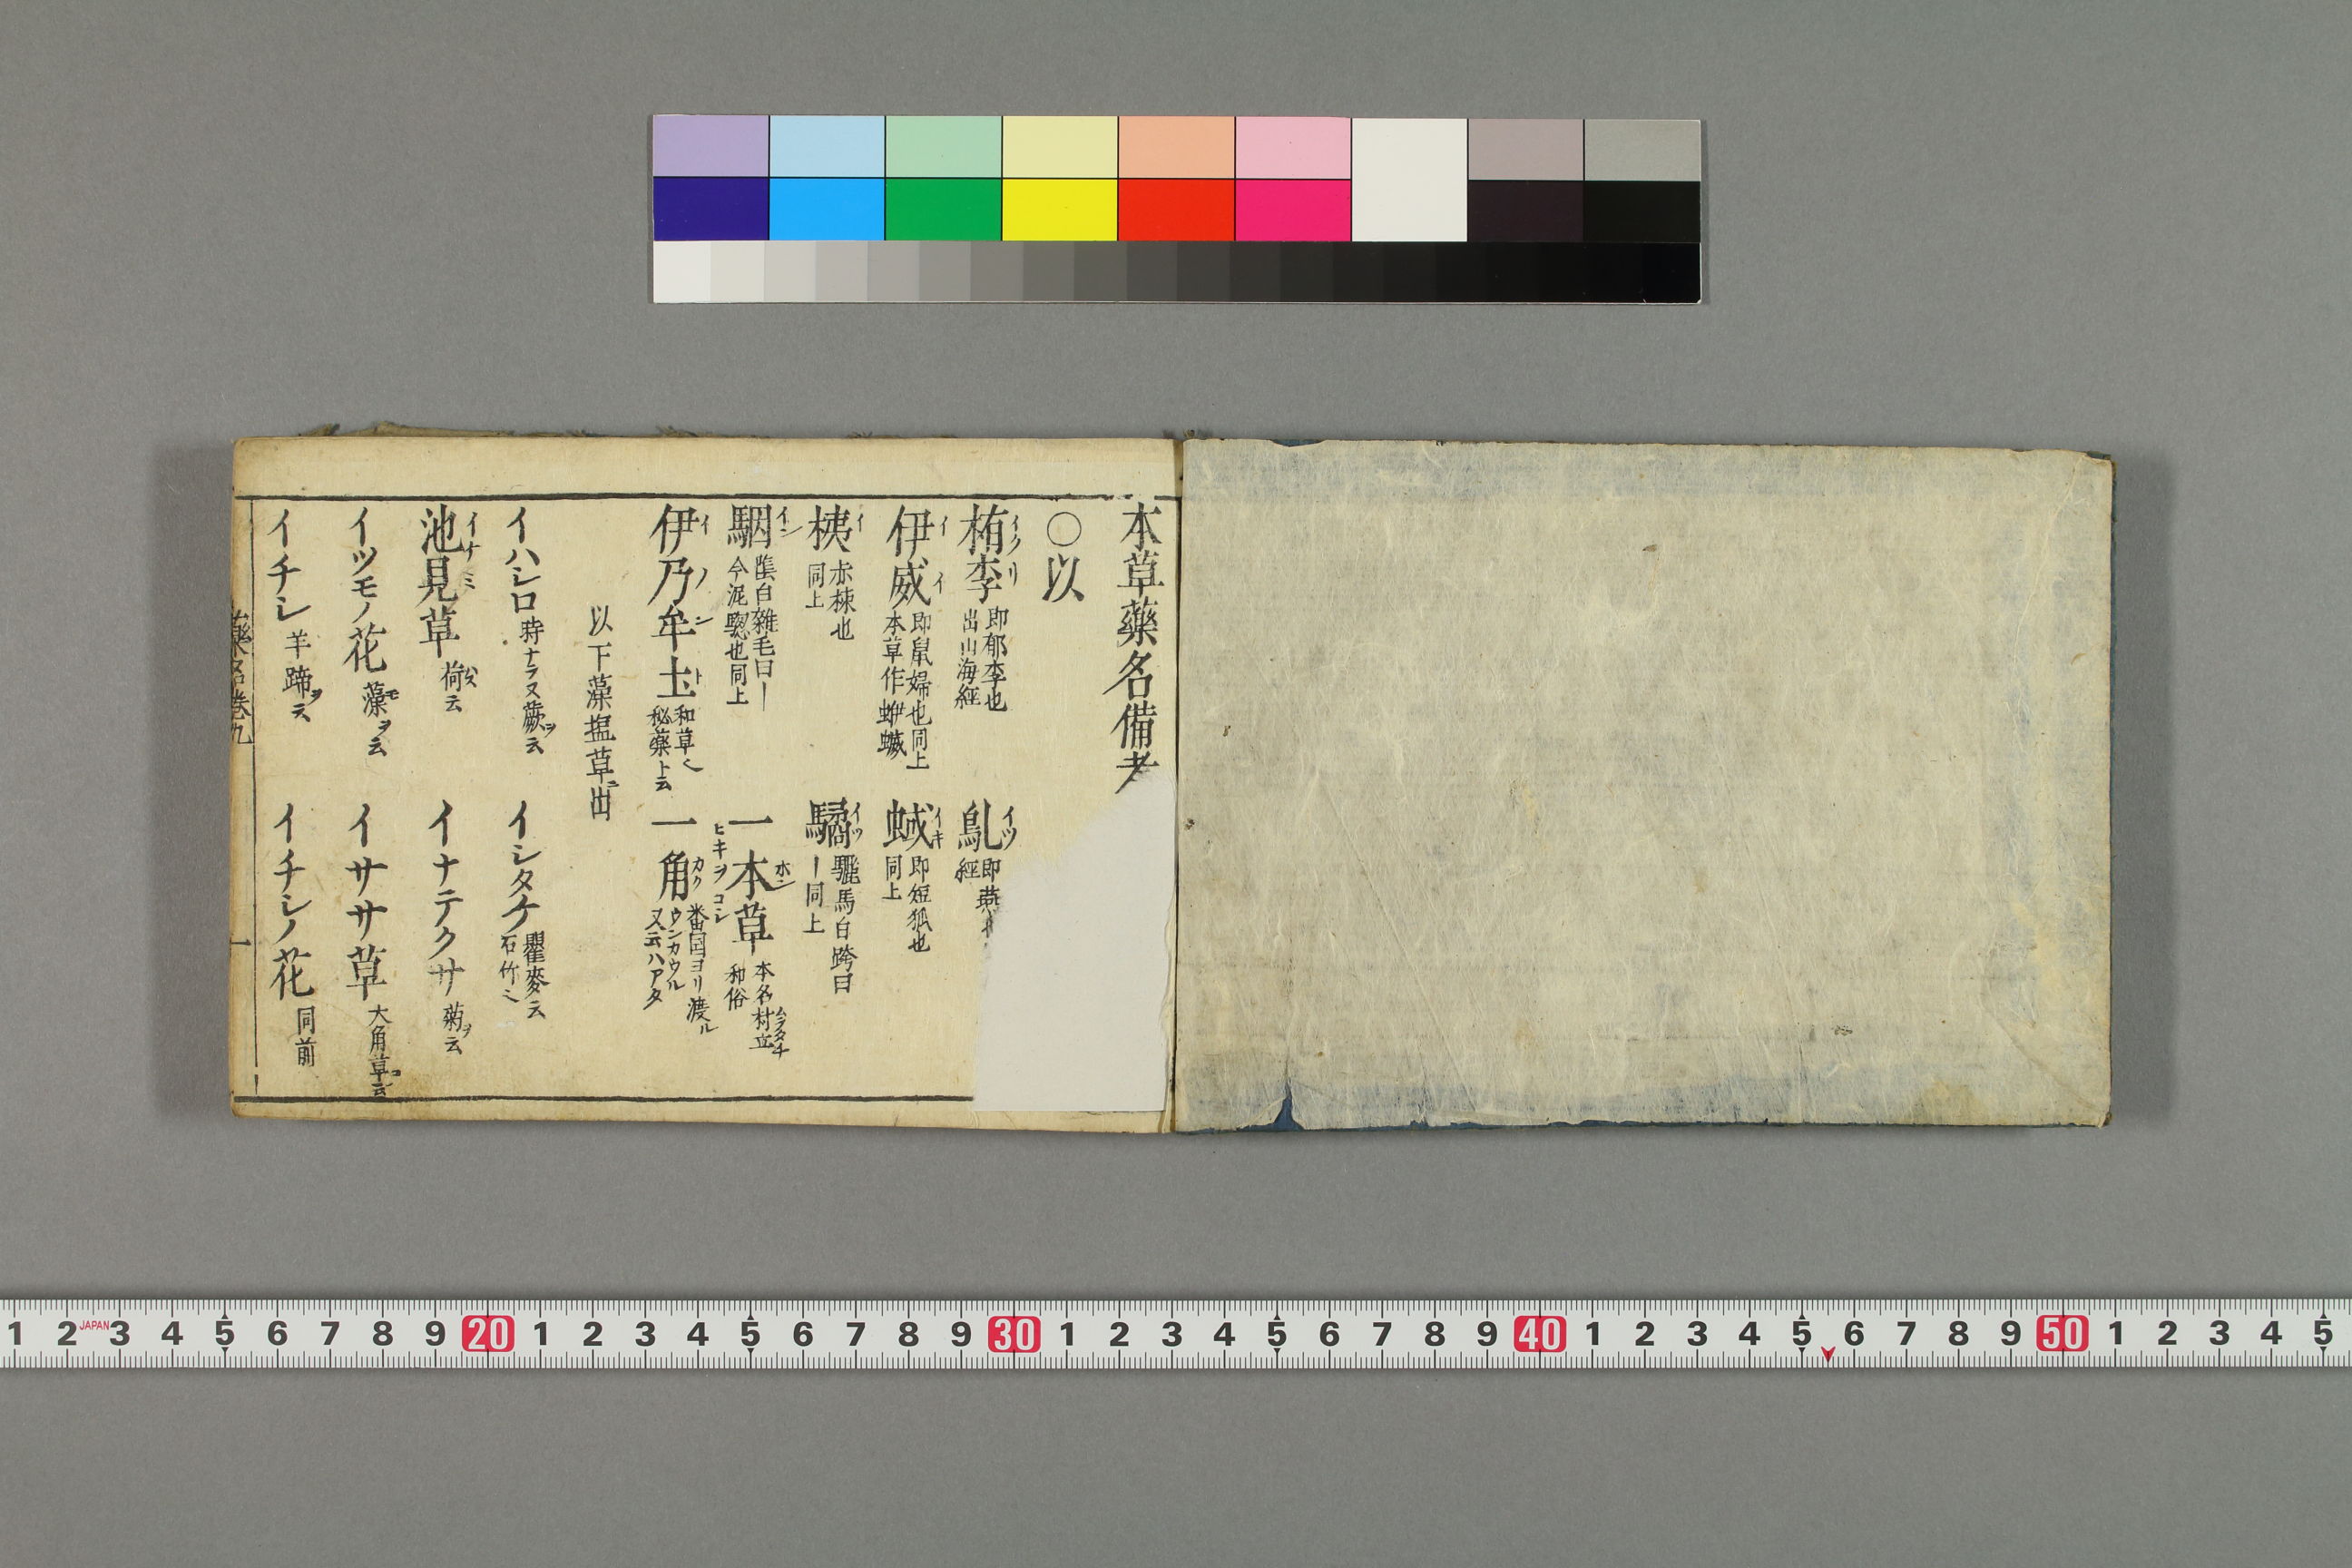 本草藥名備考
〇以
栯李 イクリ 即郁李也 出山海經
鳦 イツ 即燕 經
伊威 イイ 即鼠婦也同上 本草作蛜蝛
蜮 イキ 即短狐也 同上
桋 イ 赤楝也 同上
驈 イツ 驪馬白跨曰 ー同上
駰 イン 陰白雜毛曰ー 今泥驄也同上
一本草 ホン 本名村立 ムラタチ 和俗 ヒキヲコシ
伊乃牟土 イノント 和草 秘藥ト云
一角 カク 番国ヨリ渡ル ウンカウル 又云ハアタ
以下藻塩草ニ出
イハシロ 時ナラヌ蕨ヲ云
イシタケ 瞿麥云 石竹ニ
池見草 イナミ 荷云
イナテクサ 菊ヲ云
イツモノ花 藻モヲ云
イササ草 大角草云
イチシ 羊蹄ヲ云
イチシノ花 同前
藥名巻九
一
1 2 JAPAN 3 4 5 6 7 8 9 20 1 2 3 4 5 6 7 8 9 30 1 2 3 4 5 6 7 8 9 40 1 2 3 4 5 6 7 8 9 50 1 2 3 4 5